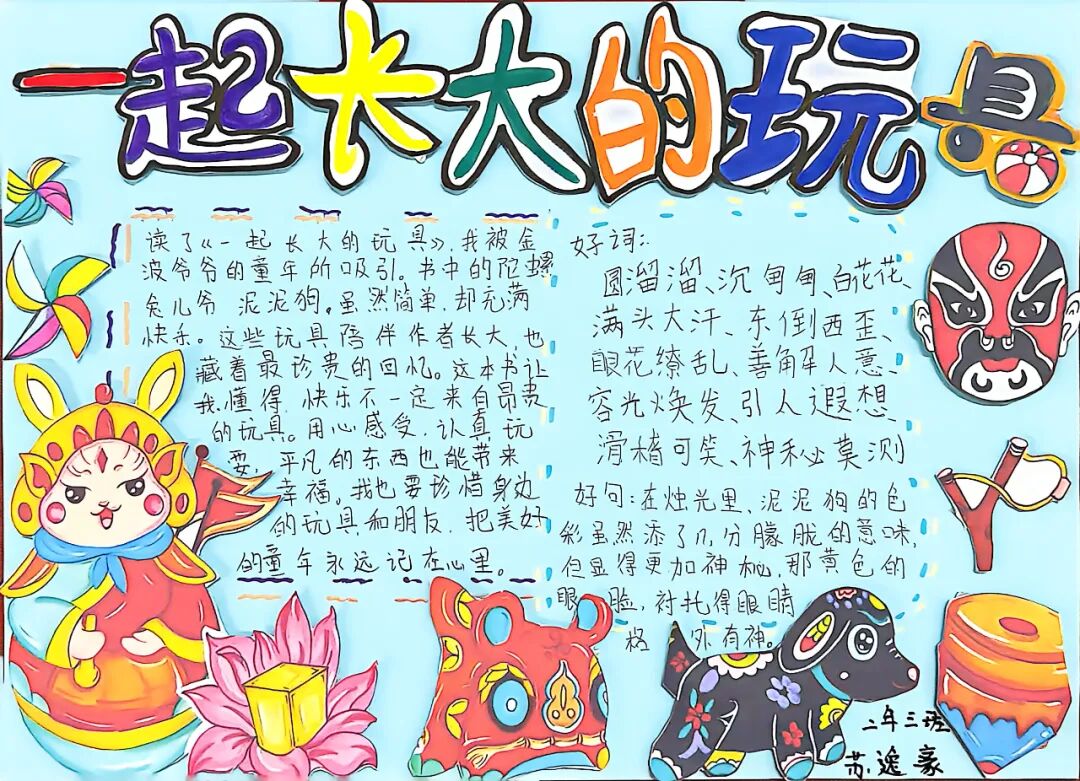 一起长大的玩具
读了《一起长大的玩具》,我被金
波爷爷的童年所吸引。书中的陀螺
兔儿爷 泥泥狗。虽然简单,却充满
快乐。这些玩具陪伴作者长大,也
藏着最珍贵的回忆。这本书让
我懂得,快乐不一定来自昂贵
的玩具。用心感受,认真玩
耍,平凡的东西也能带来
幸福。我也要珍惜身边
的玩具和朋友,把美好
的童年永远记在心里。
好词:
圆溜溜、沉甸甸、白花花、
满头大汗、东倒西歪、
眼花缭乱、善解人意、
容光焕发、引人遐想
滑稽可笑、神秘莫测
好句:在烛光里、泥泥狗的色
彩虽然添了几分朦胧的意味
但显得更加神秘,那黄色的
眼脸,衬托得眼睛
格外有神。
二年三班
苏逸豪